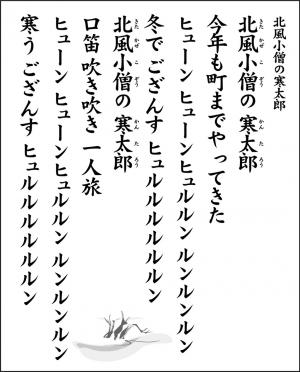 北風小僧の寒太郎
北風小僧の 寒太郎
今年も町までやってきた
ヒューン ヒューンヒュルルン ルンルンルン
冬で ござんす ヒュルルルルルルン
北風小僧の 寒太郎
口笛 吹き吹き 一人旅
ヒューン ヒューンヒュルルン ルンルンルン
寒う ござんす ヒュルルルルルルン